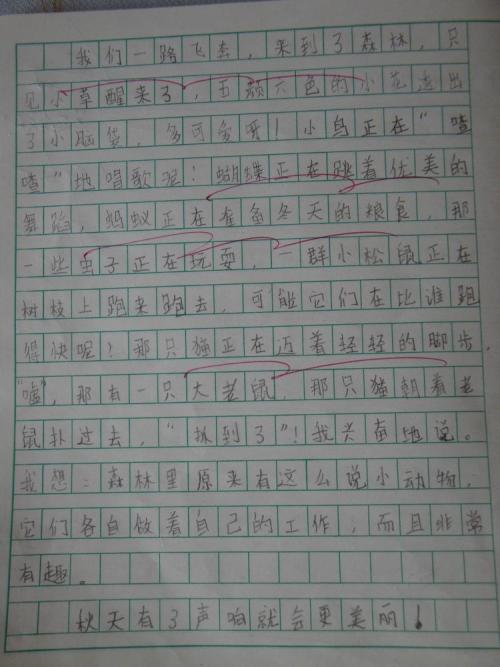 我们一路飞去，来到了森林，只
见小草醒来了，五颜六色的小花透出
了小脑袋，多可多呀！小鸟正在“喳
喳”地唱歌呢！蝴蝶正在跳着优美的
舞蹈，蚂蚁正在准备冬天的粮食，那
一些虫子正在玩耍，一群小松鼠正在
树枝上跑来跑去，可能它们在比谁跑
得快呢！那只猫正在迈着轻轻的脚步，
“嘘”，那有一只大老鼠，那只猫朝着老
鼠扑过去，“抓到了”！我兴奋地说。
我想：森林里原来有这么说小动物，
它们各自做着自己的工作，而且非常
有趣。
秋天有了声响就会更美丽！